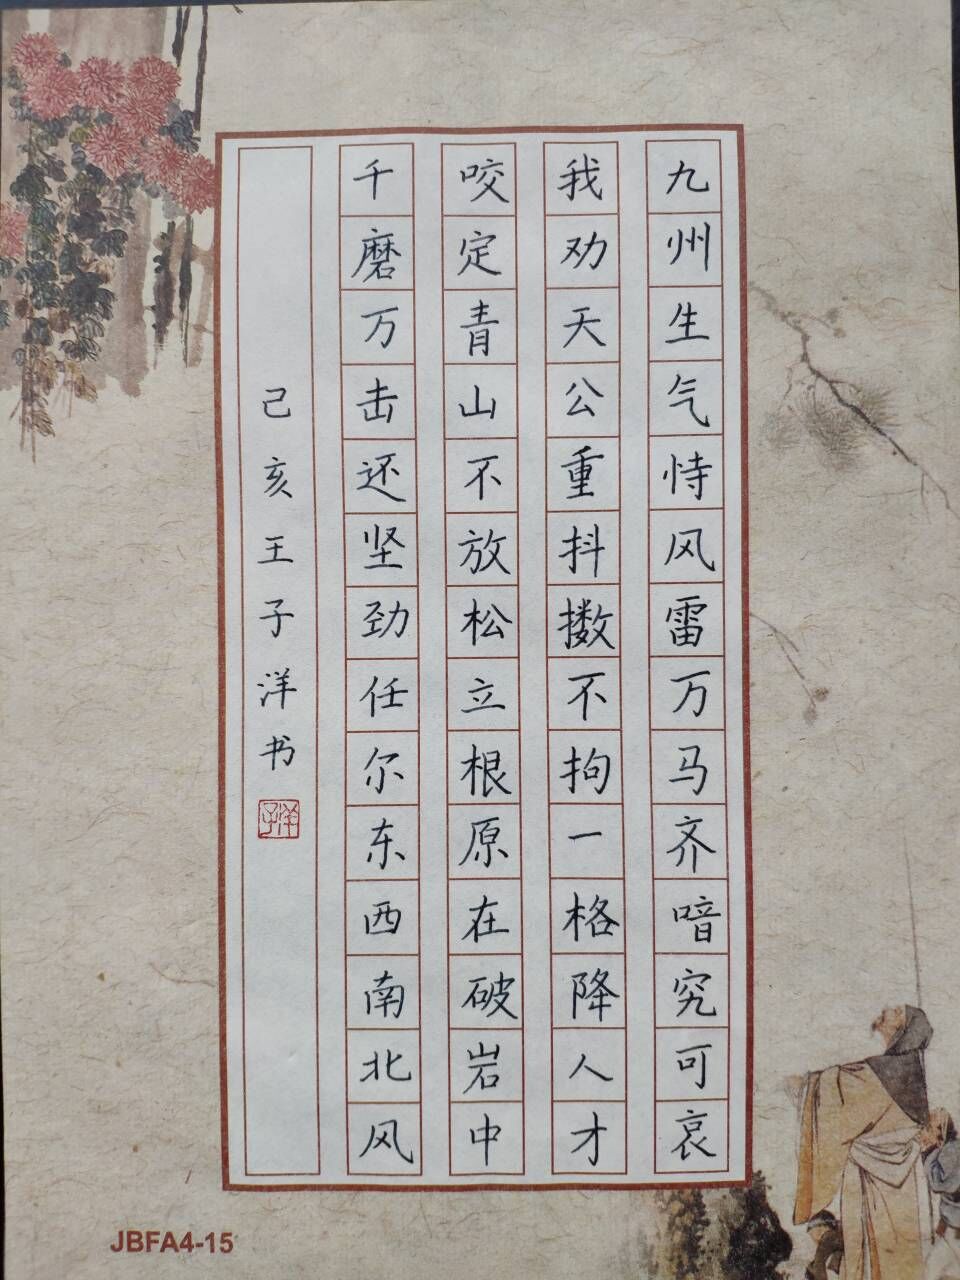 九州生气恃风雷万马齐喑究可哀
我劝天公重抖擞不拘一格降人才
咬定青山不放松立根原在破岩中
千磨万击还坚劲任尔东西南北风
己亥王子洋书
子洋
JBFA4-15